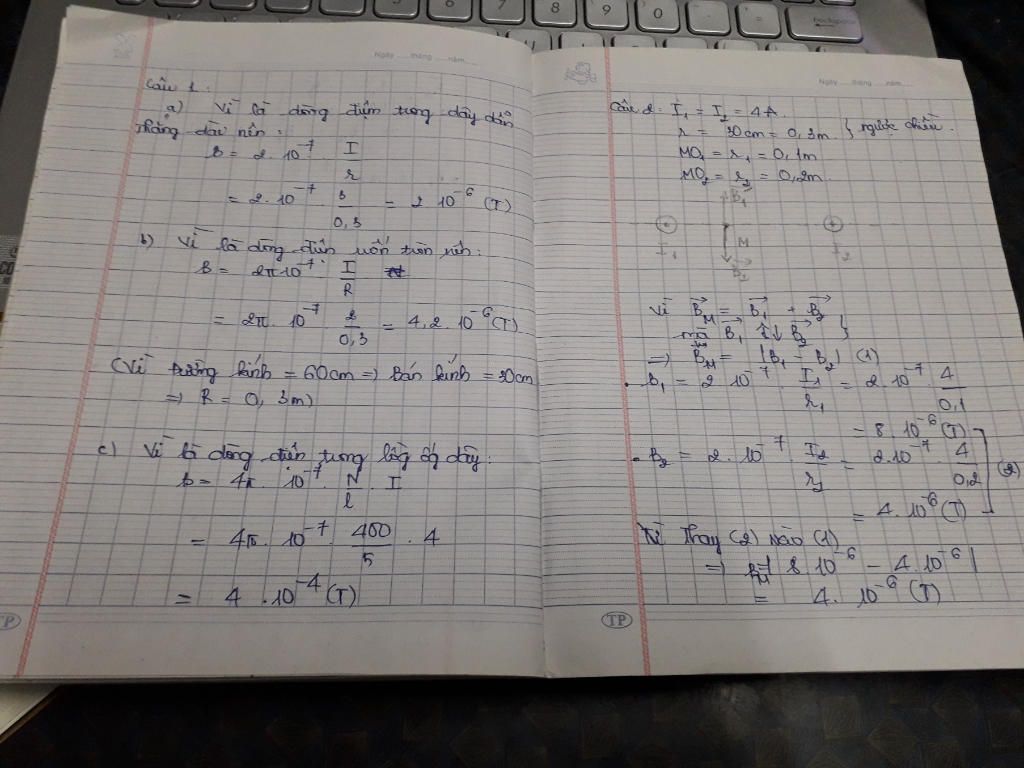 Ngày ..... tháng ..... năm.....
Câu 1:
a) Vì là dòng điện trong dây dẫn
thẳng dài nên:
B = 2. 10⁻⁷ I/r
= 2. 10⁻⁷. 3/0,3 = 2 10⁻⁶ (T)
b) Vì là dòng điện uốn tròn nên:
B = 2π 10⁻⁷. I/R
= 2π. 10⁻⁷. 2/0,3 = 4,2. 10⁻⁶(T)
(Vì đường kính = 60cm => bán kính = 30cm
=> R = 0,3m)
c) Vì là dòng điện trong lòng ống dây:
B = 4π. 10⁻⁷. N/l . I
= 4π. 10⁻⁷. 400/5 . 4
= 4 .10⁻⁴(T)
TP
Ngày ..... tháng ..... năm.....
Câu 2: I₁ = I₂ = 4A.
r = 30cm = 0,3m } ngược chiều.
MO₁ = r₁ = 0,1m
MO₂ = r₂ = 0,2m
B₁
I₁ M I₂
B₂
Vì B_M = B₁ + B₂
mà B₁ ↑↓ B₂ }
=> B_M = |B₁ - B₂| (1)
. B₁ = 2 10⁻⁷. I₁/r₁ = 2. 10⁻⁷. 4/0,1
= 8. 10⁻⁶ (T)
. B₂ = 2. 10⁻⁷. I₂/r₂ = 2.10⁻⁷. 4/0,2 (2)
= 4. 10⁻⁶ (T)
Thay (2) vào (1)
=> 8 10⁻⁶ - 4. 10⁻⁶|
= 4. 10⁻⁶ (T)
TP
7 8 9 0 - = backspace